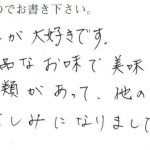 のでお書き下さい。
が大好きです。
品なお味で美味
類があって、他の
しみになりまして